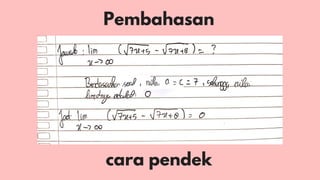 Pembahasan
Jawab : lim (√7x+5 - √7x+8) = ?
x→∞
Berdasarkan soal, nilai a = c = 7, sehingga nilai
limitnya adalah 0
Jadi lim (√7x+5 - √7x+8) = 0
x→∞
cara pendek